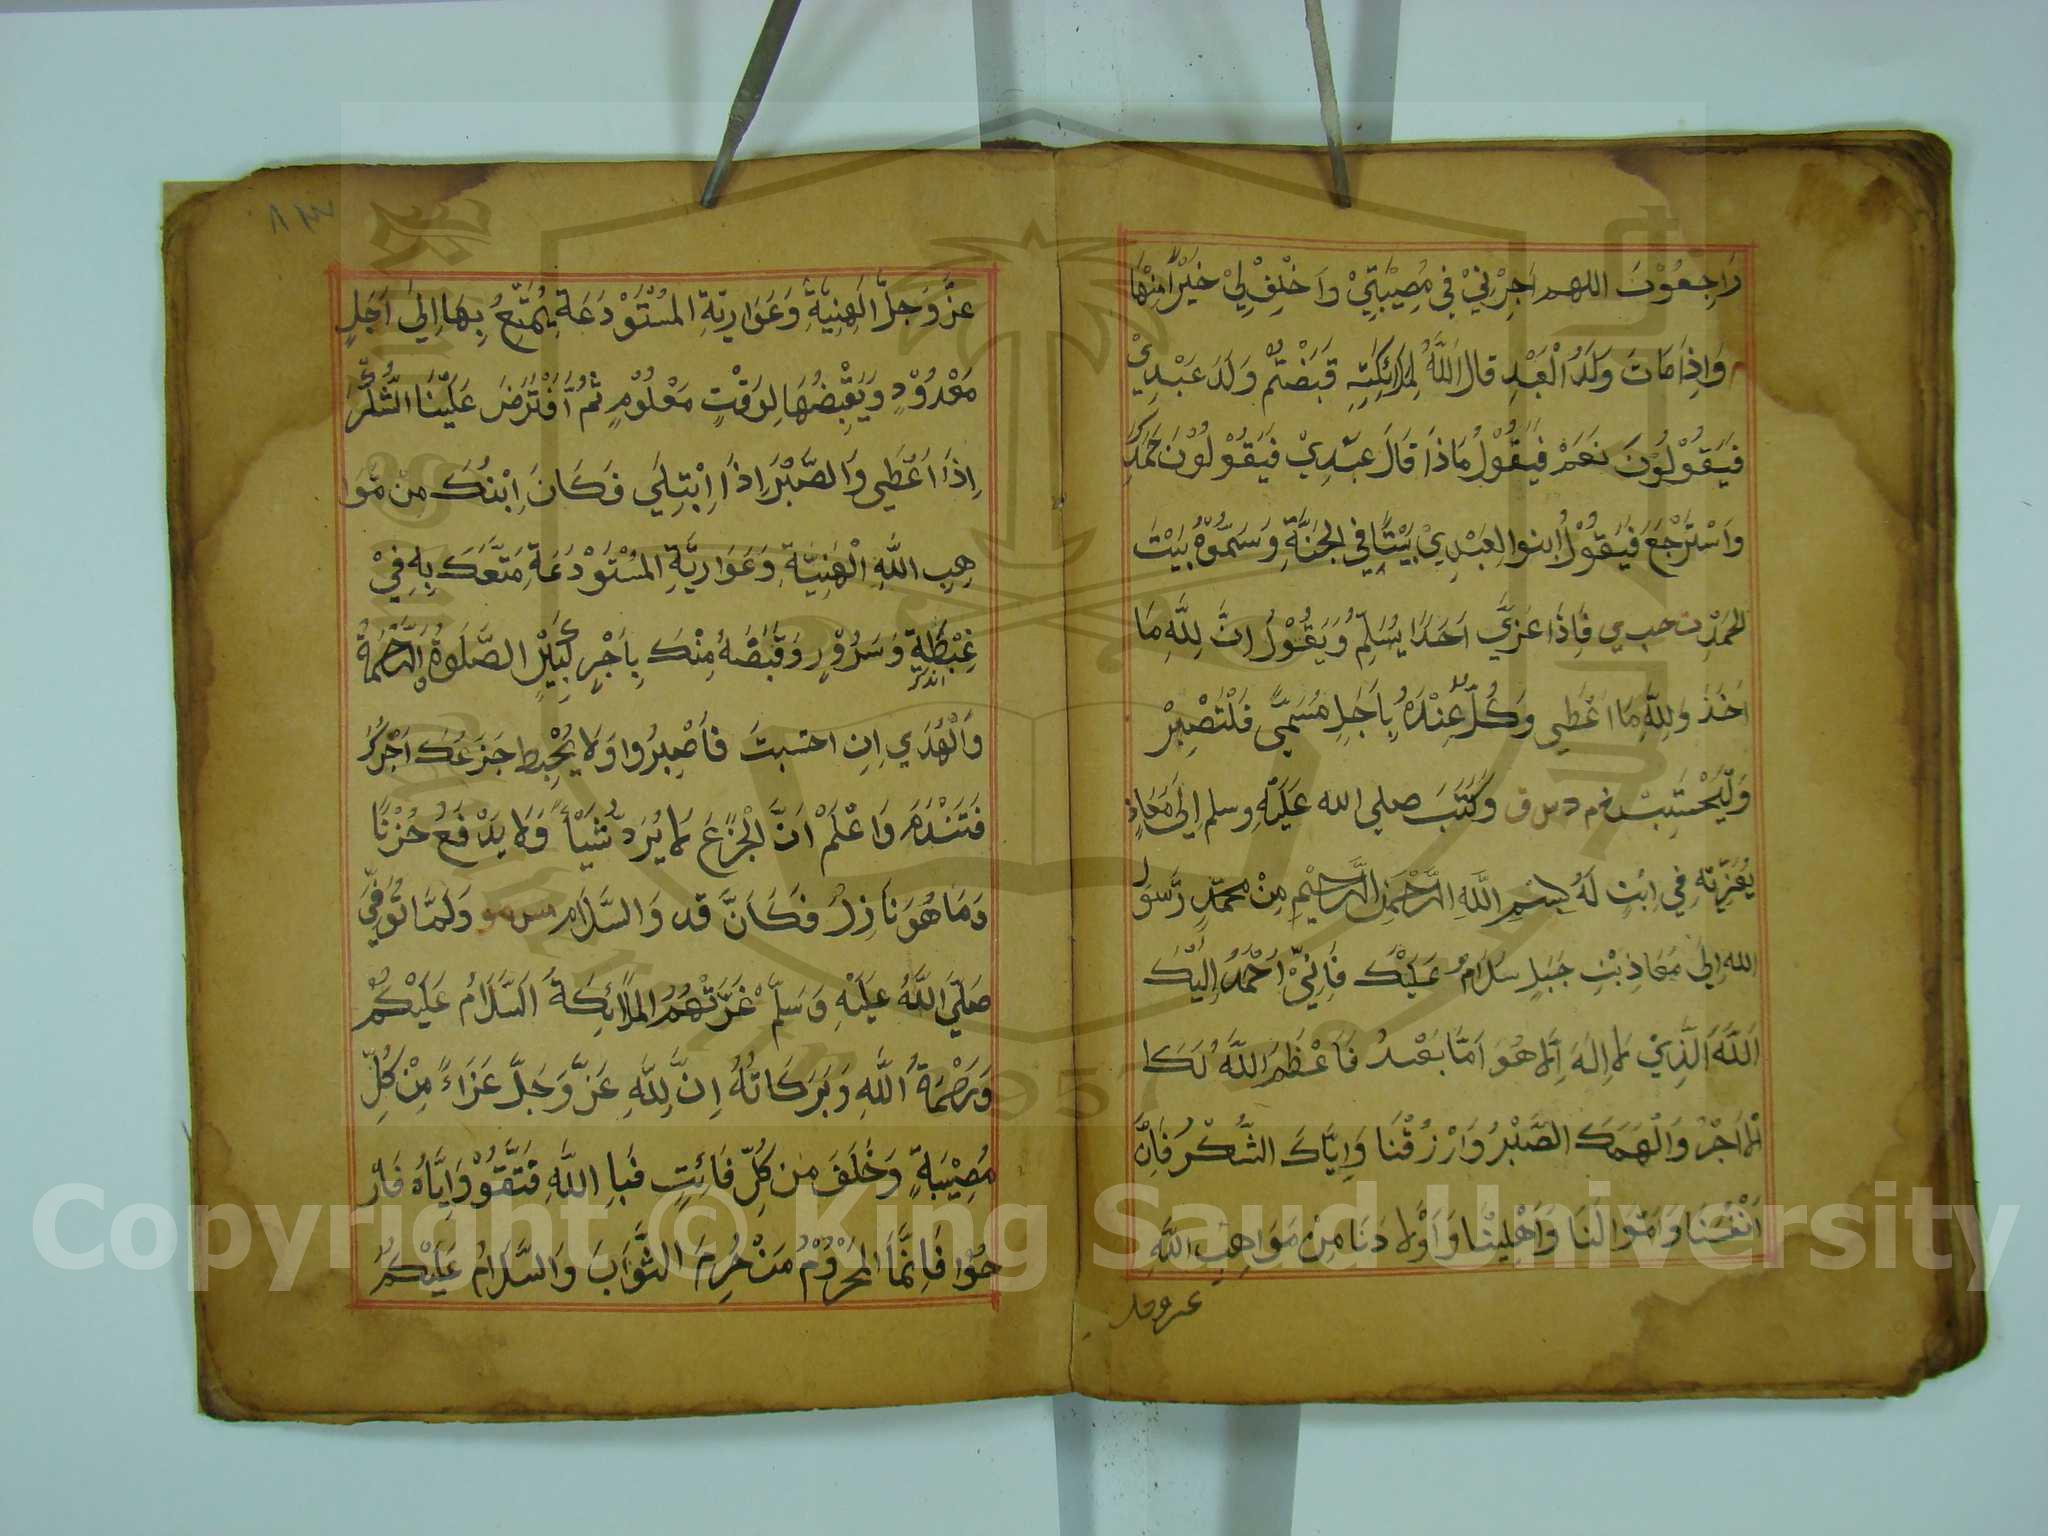 رَاجِعُوْنَ اللهم اَجِرْنِيْ فِي مُصِيْبَتِيْ وَاَخْلِفْ لِيْ خَيْرًا مِنْهَا
وَاِذَا مَاتَ وَلَدُ الْعَبْدِ قَالَ اللَّهُ لِمَلَائِكَتِهِ قَبَضْتُمْ وَلَدَ عَبْدِيْ
فَيَقُوْلُوْنَ نَعَمْ فَيَقُوْلُ مَاذَا قَالَ عَبْدِيْ فَيَقُوْلُوْنَ حَمَدَكَ
وَاسْتَرْجَعَ فَيَقُوْلُ ابنوا لِعَبْدِيْ بَيْتًا فِي الْجَنَّةِ وَسَمُّوْهُ بَيْتَ
الحَمْدِ ت حب ي فَاِذَا عَزَّي اَحَدًا يُسَلِّمُ وَيَقُوْلُ اِنَّ لِلَّهِ مَا
اَخَذَ وَلِلَّهِ مَا اَعْطَي وَكُلٌّ عِنْدَهُ بِاَجَلٍ مُسَمًّي فَلْتَصْبِرْ
وَلْتَحْتَسِبْ خ م د س ق وَكَتَبَ صلي الله عَلَيْهِ وسلم اِلَي مَعَاذٍ
يُعَزِّيْهِ فِي ابْنٍ لَهُ بِسْمِ اللَّهِ الرَّحْمَنِ الرَّحِيْمِ مِنْ محمّدٍ رَسُولِ
الله اِلَي مَعَاذِ بْنِ جَبَلٍ سَلَامٌ عَلَيْكَ فَاِنِّيْ اَحْمَدُ اِلَيْكَ
اللَّهَ الَّذِيْ لَا اِلَهَ اِلَّا هُوَ اَمَّا بَعْدُ فَاَعْظَمَ اللَّهُ لَكَ ا
لْاَجْرَ وَالْهَمَكَ الصَّبْرَ وَارْزُقْنَا وَاِيَّاكَ الشُّكْرَ فَاِنَّ
اَنْفُسَنَا وَاَمْوَالَنَا وَاَهْلِيْنَا وَاَوْلَادَنَا مِنْ مَوَاهِبِ اللَّهِ
عز وجل
٨٣
عَزَّ وَجَلَّ الْهَنِيَّةِ وَعَوَارِيِّةِ المُسْتَوْدَعَةِ يُمَتِّعُ بِهَا اِلَي اَجَلٍ
مَعْدُوْدٍ وَيَقْبِضُهَا لِوَقْتٍ مَعْلُوْمٍ ثُمَّ افْتَرَضَ عَلَيْنَا الشُّكْرَ
اِذَا اَعْطَي وَالصَّبْرَ اِذَا ابْتَلَي فَكَانَ ابْنُكَ مِنْ مَوَا
هِبِ اللَّهِ الْهَنِيَّةِ وَعَوَارِيَّةِ المُسْتَوْدَعَةِ مَتَّعَكَ بِهِ فِيْ
غِبْطَةٍ وَسُرُوْرٍ وَقَبَضَهُ مِنْكَ بِاَجْرٍ كَبِيْرٍ الصَّلَوةُ وَالرَّحْمَةُ
وَالْهُدَي اِنِ احتسبتَ فَاصْبِرُوا وَلَا يُحْبِط جَزَعُكَ اَجْرَكَ
فَتَنْدَمَ وَاعْلَمْ اَنَّ الْجَزَعَ لَا يُرَدُّ شَيْأً وَلَا يَدْفَعُ حُزْنًا
وَمَا هُوَ نَازِلٌ فَكَاَنَّ قد وَالسَّلَام مس مو وَلَمَّا تُوُفِّيَ
صَلَّي اللَّهُ عَلَيْهِ وَسَلَّمَ عَزَّتْهُمُ المَلَائِكَةُ اَلسَّلَامُ عَلَيْكُمْ
وَرَحْمَةُ اللَّهِ وَبَرَكَاتُهُ اِنَّ لِلَّهِ عَزَّ وَجَلَّ عَزَاءً مِنْ كُلِّ
مُصِيْبَةٍ وَخَلَفَ مِن كُلِّ فَائِتٍ فَبِاللَّهِ فَتَّقُوْ وَاِيَّاهُ فَارْ
جُوْا فَاِنَّمَا المَحْرُوْمُ مَنْ حُرِمَ الثَّوَابَ وَالسَّلَامُ عَلَيْكُمْ
Copyright © King Saud University